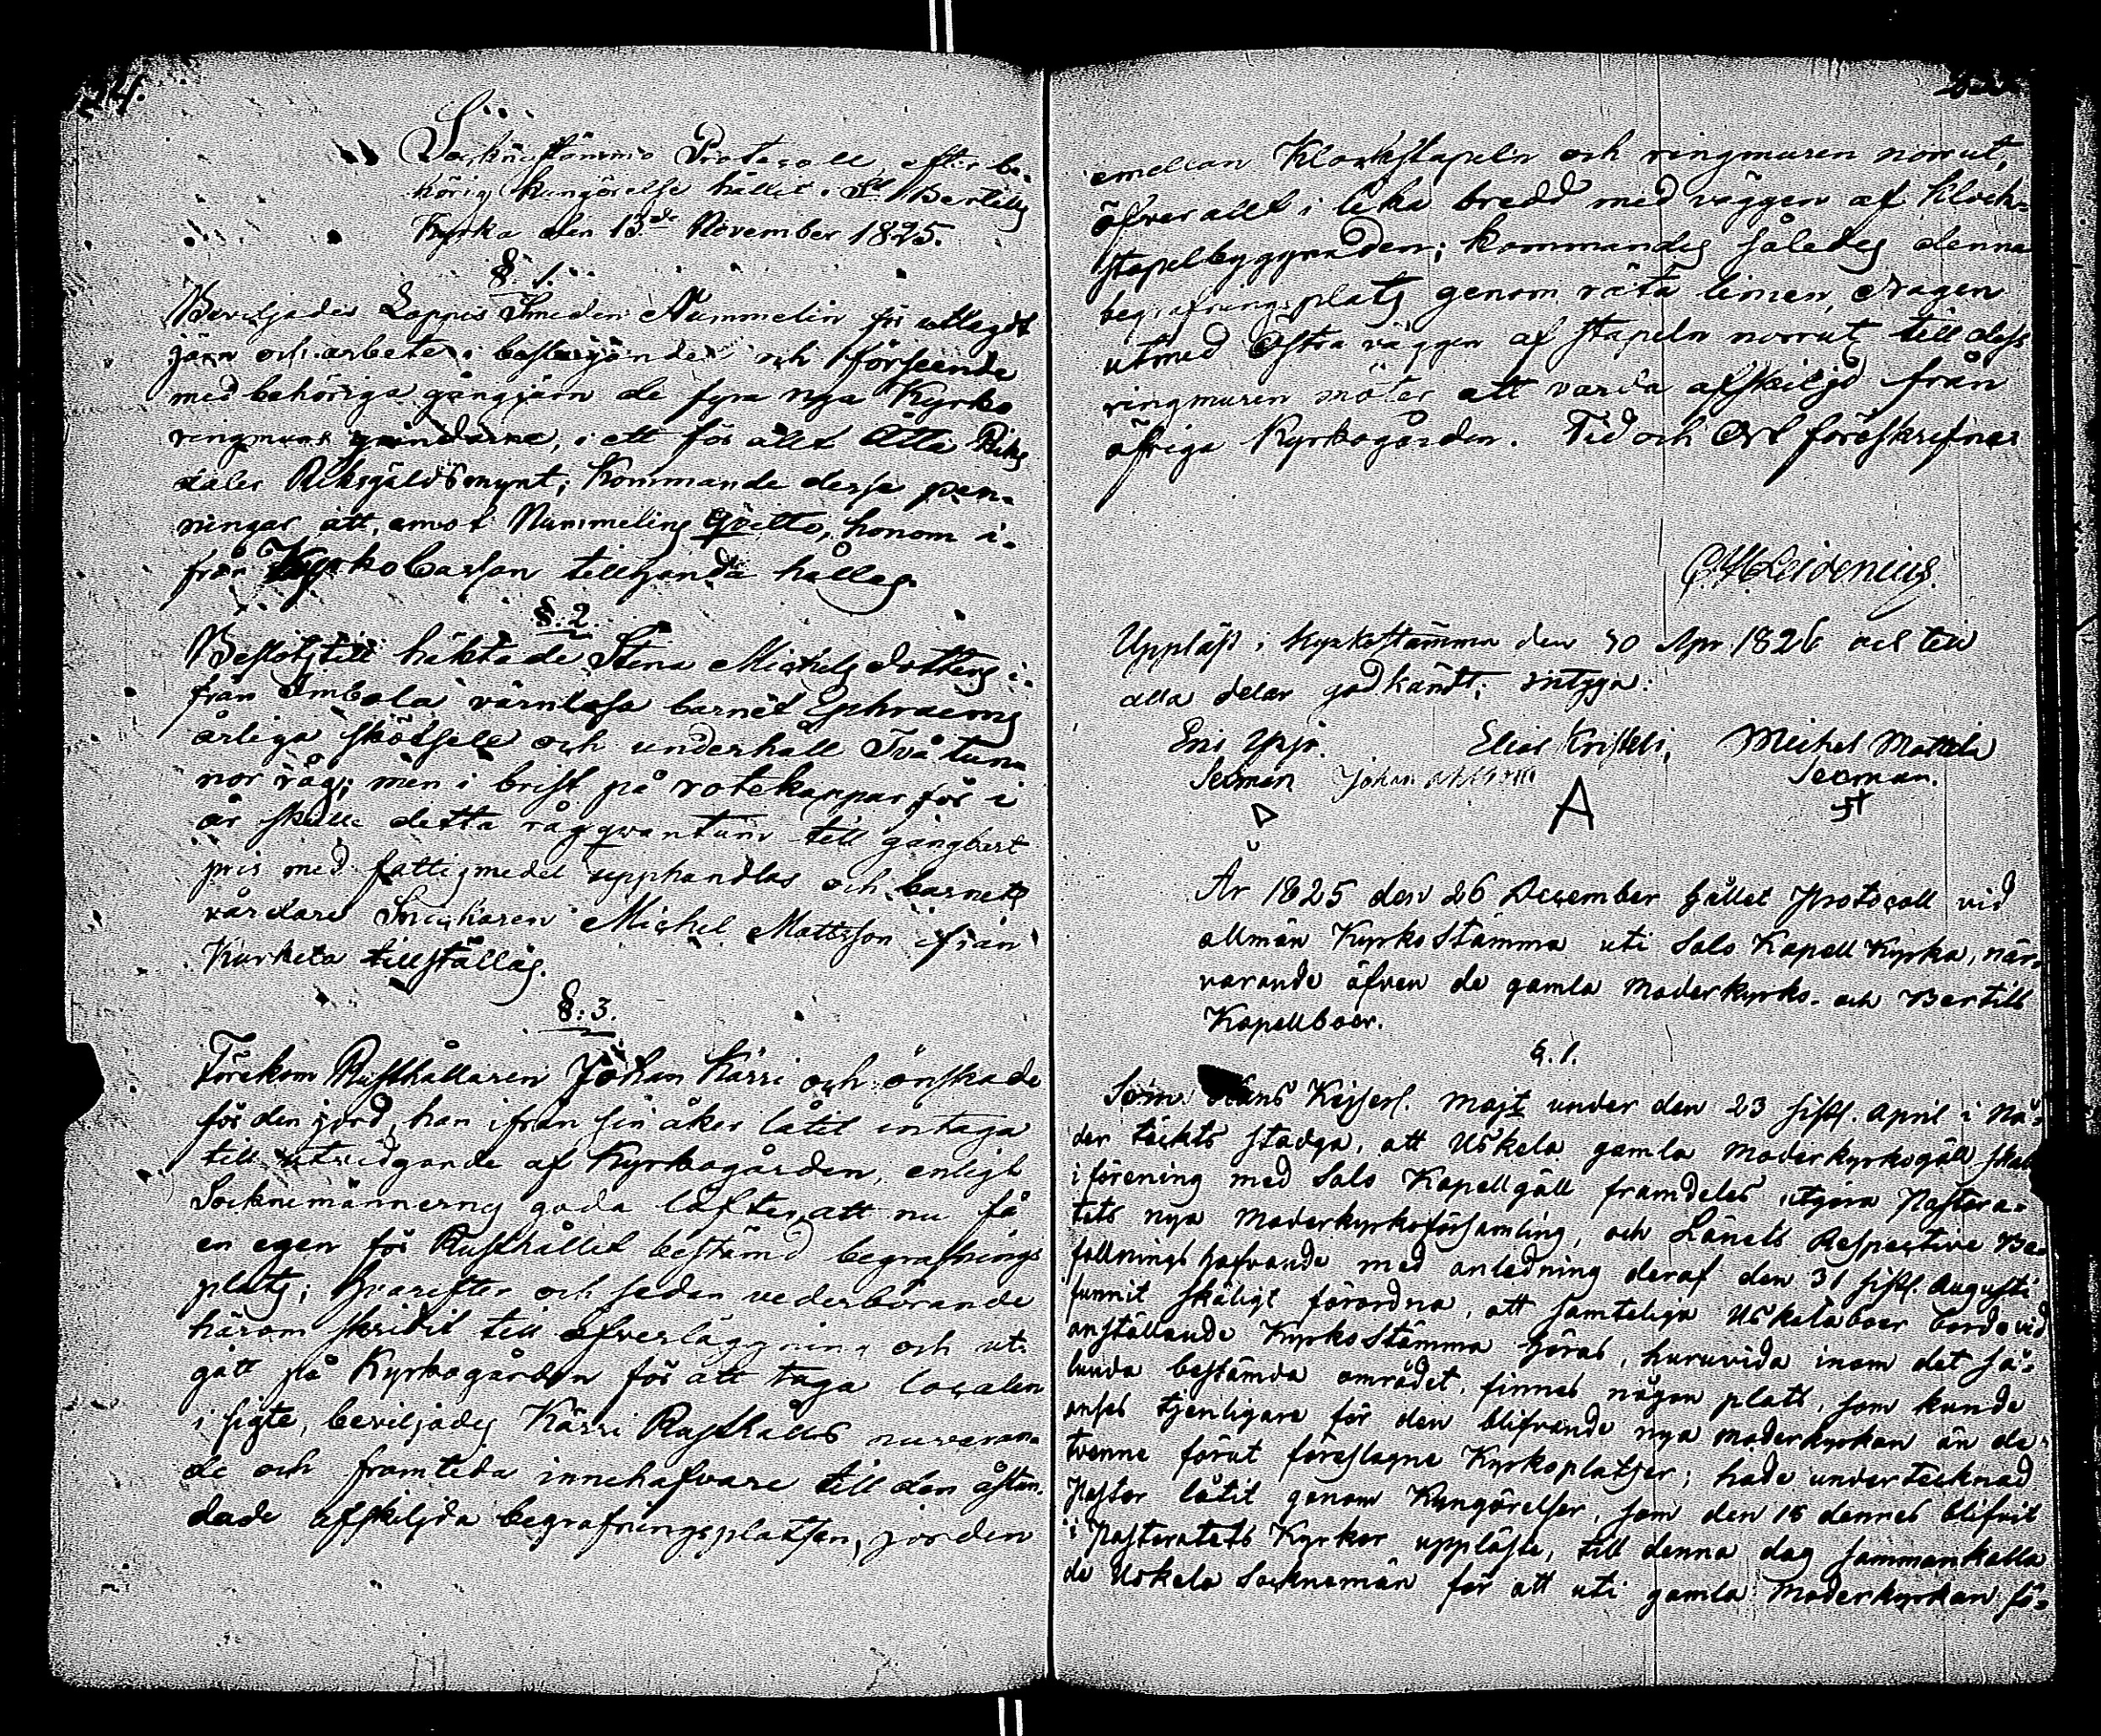 24.
Socknestämmo Protocoll efter be-
hörig kungörelse hållit i St Bertils
Kyrka den 13de November 1825.
§. 1.
Beviljades Lappis Smeden Nummelin för utlagdt
järn och arbete i och förseende
med behöriga gångjärn de fyra nya Kyrko
ringmurs grindarne, i ett för allt Åtta Riks
daler Riksgäldsmynt; kommande dessa pen-
ningar att, emot Nummelins qvitto, honom i-
från KyrkoCassan tillhanda hållas.
§. 2.
Beslöts till häktade Stina Michels dotters i-
från Imbola värnlösa barnet Ephraems
årliga skötsell och underhåll Två tun-
nor råg; men i brist på rotekappar för i
år skulle detta rågqvantum till gångbart
pris med fattigmedel upphandlas och barnets
vårdare Snickaren Michel Mattsson ifrån
Kurkela tillställas.
§. 3.
Förekom Rusthållaren Johan Kärri och önskade
för den jord, han ifrån sin åker låtit intaga
till utvidgande af Kyrkogården, enligt
Socknemännerns goda löfte, att nu få
en egen för Rusthållet bestämd begrafnings
plats; hvarefter och sedan vederbörande
härom skridit till öfverläggning och ut-
gått på Kyrkogården för att taga localen
i sigte, beviljades Kärri Rusthålls nuvaran-
de och framtida innehafvare till den åstun-
dade afskiljda begrafningsplatsen, jorden
emellan Klockstapeln och ringmuren norrut,
öfver allt i lika bredd med väggen af Klock-
stapelbyggnaden; kommandes således denna
begrafningsplats genom räta linien, dragen
utmed Östra väggen af stapeln norrut till dess
ringmuren möter att varda afskiljd från
öfriga Kyrkogården. Tid och Ort föreskrefne
Leidenius.
Uppläst i Kyrkostämma den 30 Apr 1826 och till
alla delar godkändt; intyga:
Elias Kriskeli, Michel Mattila
Seoman Johan Seoman.
A
År 1825 den 26 December hållet Protocoll vid
allmän Kyrkostämma uti Salo Kapell Kyrka, när-
varande äfven de gamla moderkyrko- och Bertills
Kapellboer.
§. 1.
Som Hans Kejserl. Majt under den 23 sistl. April i Nå-
der täckts stadga, att Uskela gamla moderkyrkogäll skall
i förening med Salo Kapellgäll framdeles utgöra Pastora-
tets nya moderkyrkoförsamling, och Länets Respective Be-
fallningshafvande med anledning deraf den 31 sistl. Augusti
funnit skäligt förordna, att samtelige Uskelaboer borde vid
anställande Kyrkostämma höras, huruvida inom det så-
lunda bestämda området, finnes någon plats, som kunde
anses tjenligare för den blifvande nya moderkyrkan än de
tvenne förut föreslagne Kyrkoplatser; hade undertecknad
Pastor låtit genom Kungörelser, som den 18 dennes blifvit
i Pastoratets Kyrkor uppläste, till denna dag sammankalla
de Uskela Socknemän för att uti gamla Moderkyrkan få-